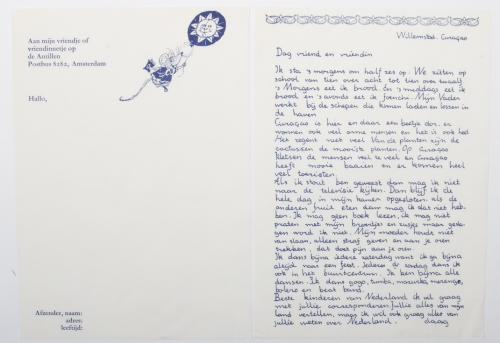 Aan mijn vriendje of
vriendinnetje op
de Antillen
Postbus 8282, Amsterdam
Hallo,
Afzender, naam:
adres:
leeftijd:
Willemstad. Curaçao
Dag vriend en vriendin
Ik sta 's morgens om half zes op. We zitten op
school van tien over acht tot tien over twaalf
's Morgens eet ik brood. En 's middags eet ik
brood en 's avonds eet ik funchi. Mijn Vader
werkt bij de schepen die komen laden en lossen in
de haven
Curaçao is hier en daar een beetje dor. er
wonnen ook veel arme mensen en het is ook heet
Het regent niet veel Van de planten zijn de
cactussen de mooiste planten. Op Curaçao
kletsen de mensen veel te veel en Curaçao
heeft mooie baaien en er komen heel
veel toeristen.
Als ik stout ben geweest dan mag ik niet
naar de televisie kijken. Dan blijf ik de
hele dag in mijn kamer opgesloten. als de
anderen fruit eten dan mag ik dat niet heb-
ben. Ik mag geen boek lezen, ik mag niet
praten met mijn broertjes en zusjes maar gesla-
gen word ik niet. Mijn moeder houdt niet
van slaan, alleen straf geven en aan je oren
trekken, dat doet pijn aan je oren.
Ik dans bijna iedere zaterdag want ik ga bijna
altijd naar een feest. Iedere zondag dans ik
ook in het buurtcentrum. Ik ken bijna alle
dansen. Ik dans gogo, tumba, mazurka, merengo,
bolero en beat band.
Beste kinderen van Nederland ik wil graag
met jullie corresponderen. Jullie alles van mijn
land vertellen, maar ik wil ook graag alles van
jullie weten over Nederland. daag